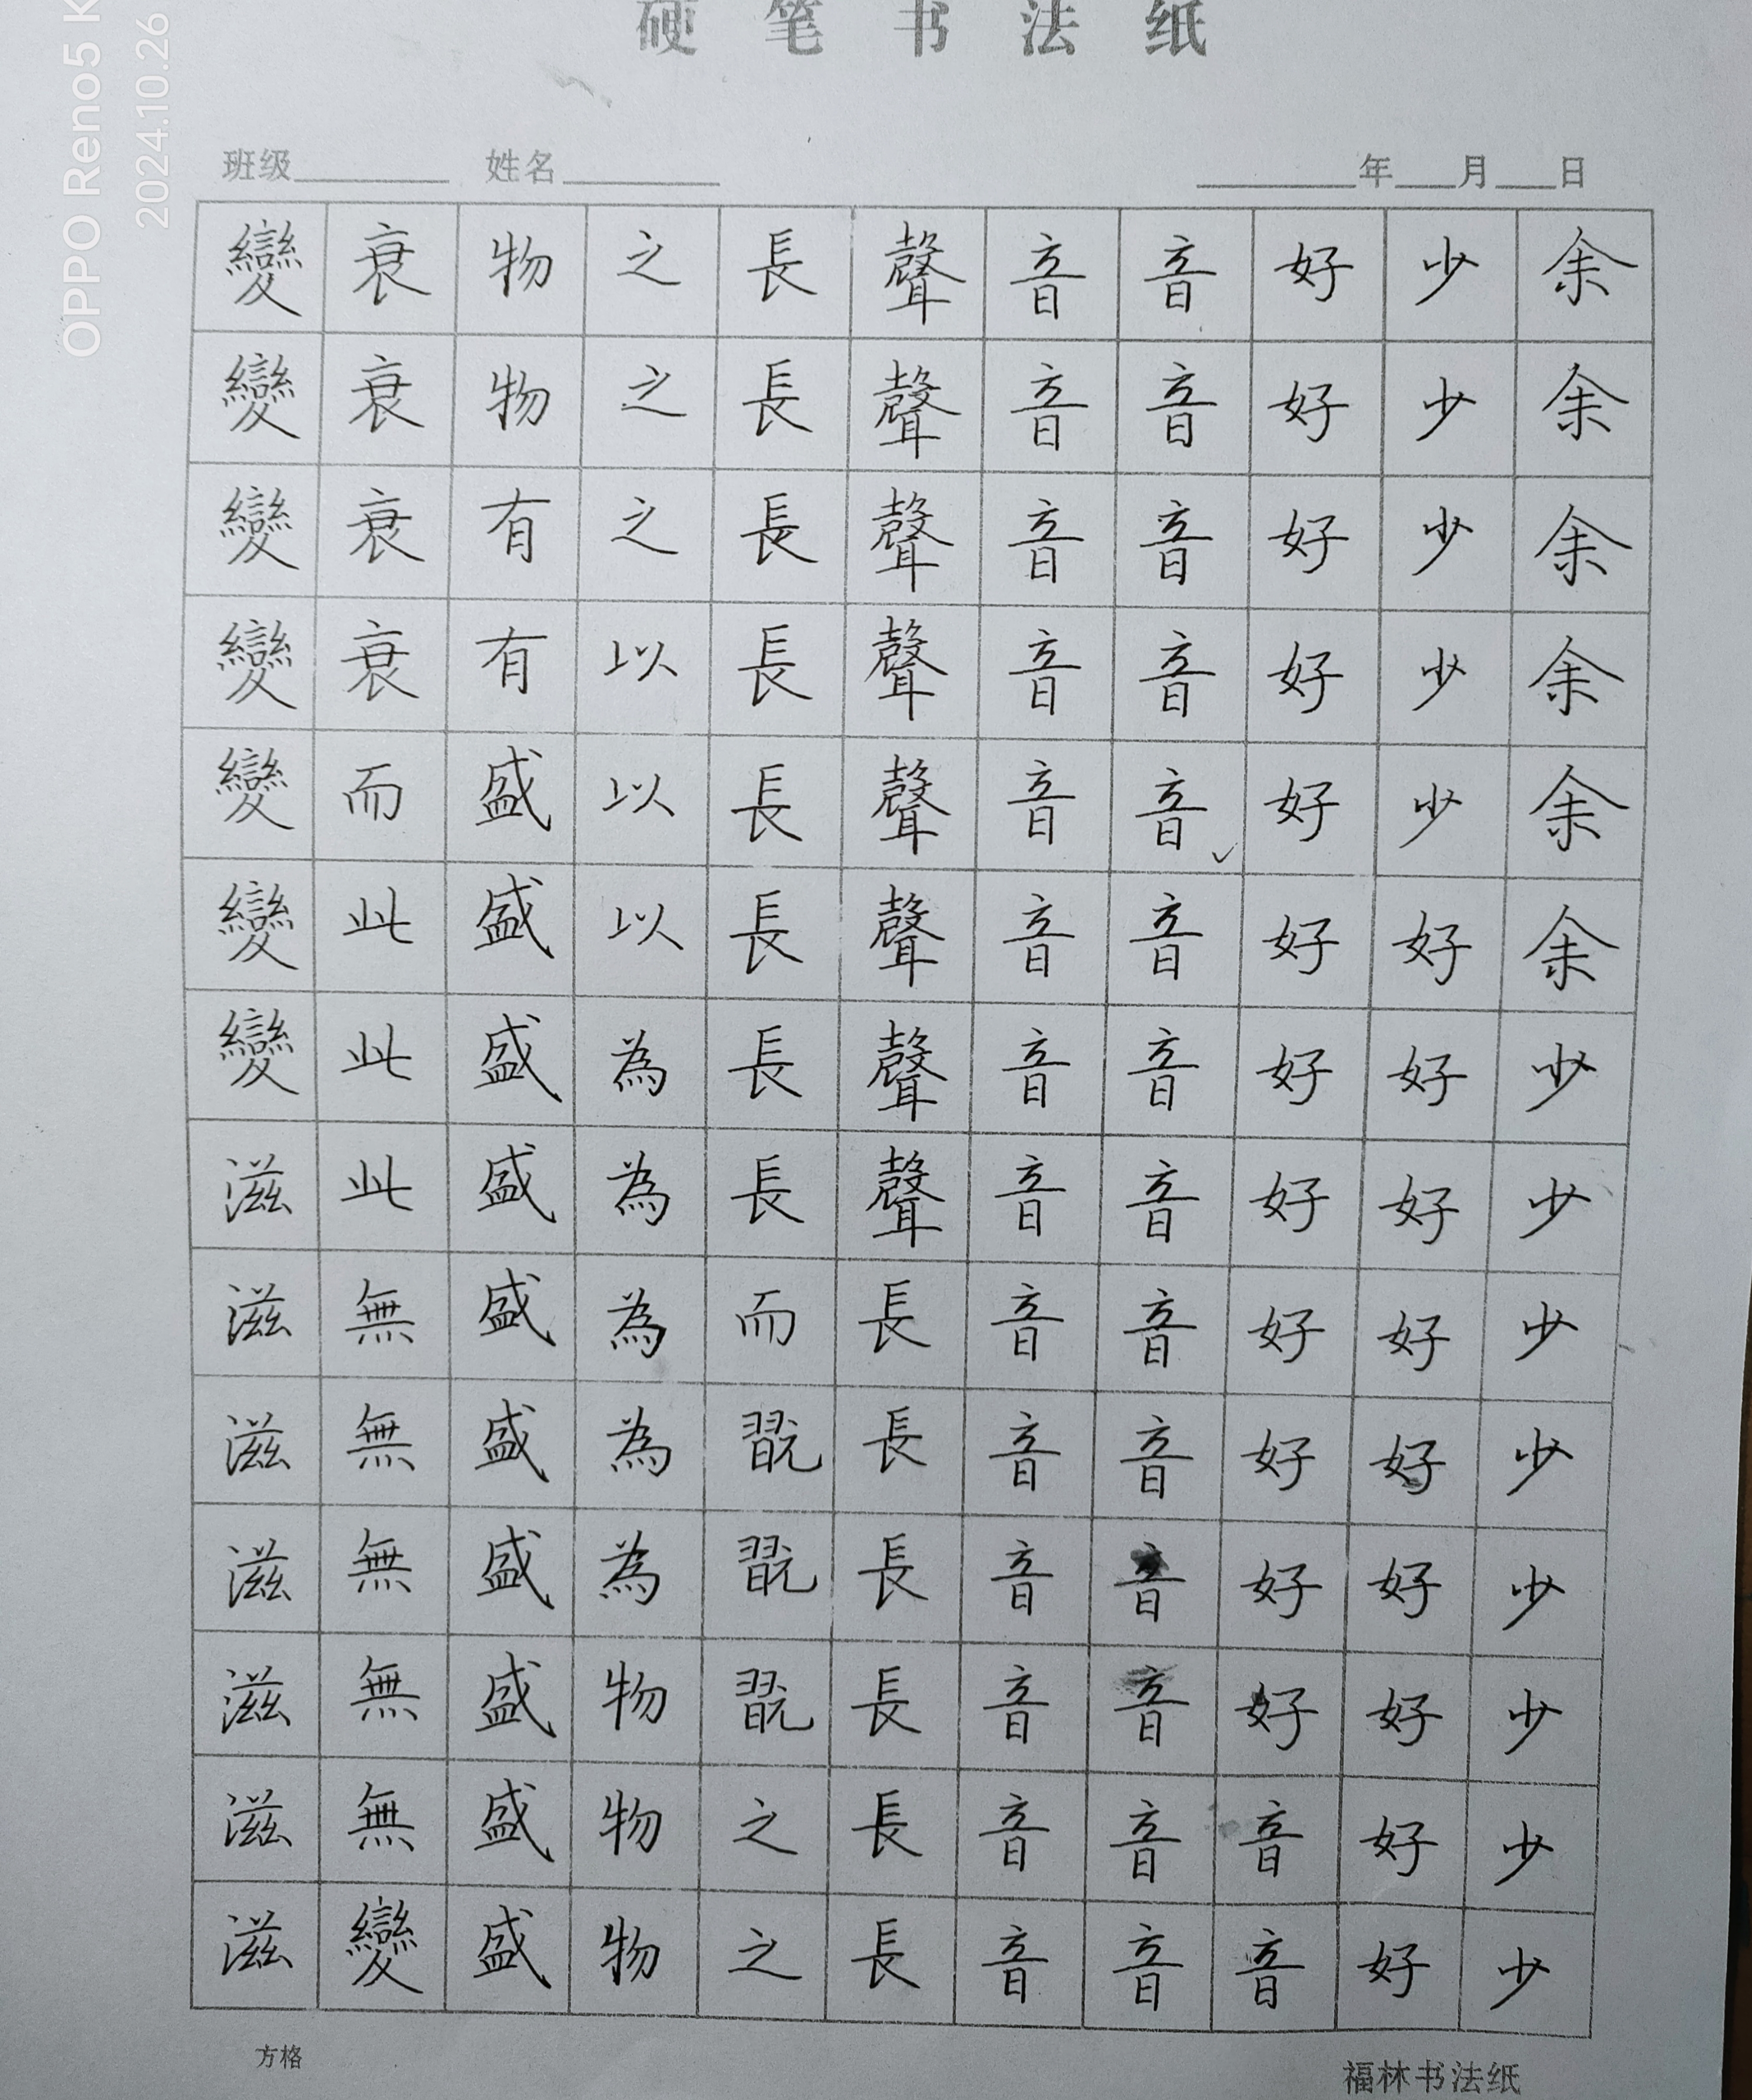 硬笔书法纸
班级 姓名 年 月 日
余余余余余余少少少少少少少少
少少少少少好好好好好好好好好
好好好好好好好好好好好好音音
音音音音音音音音音音音音音音
音音音音音音音音音音音音音音
聲聲聲聲聲聲聲聲長長長長長長
長長長長長長長長而翫翫翫之之
之之之以以以為為為為為物物物
物物有有盛盛盛盛盛盛盛盛盛盛
衰衰衰衰而此此此無無無無無變
變變變變變變變滋滋滋滋滋滋滋
方格
福林书法纸
OPPO Reno5 K
2024.10.26